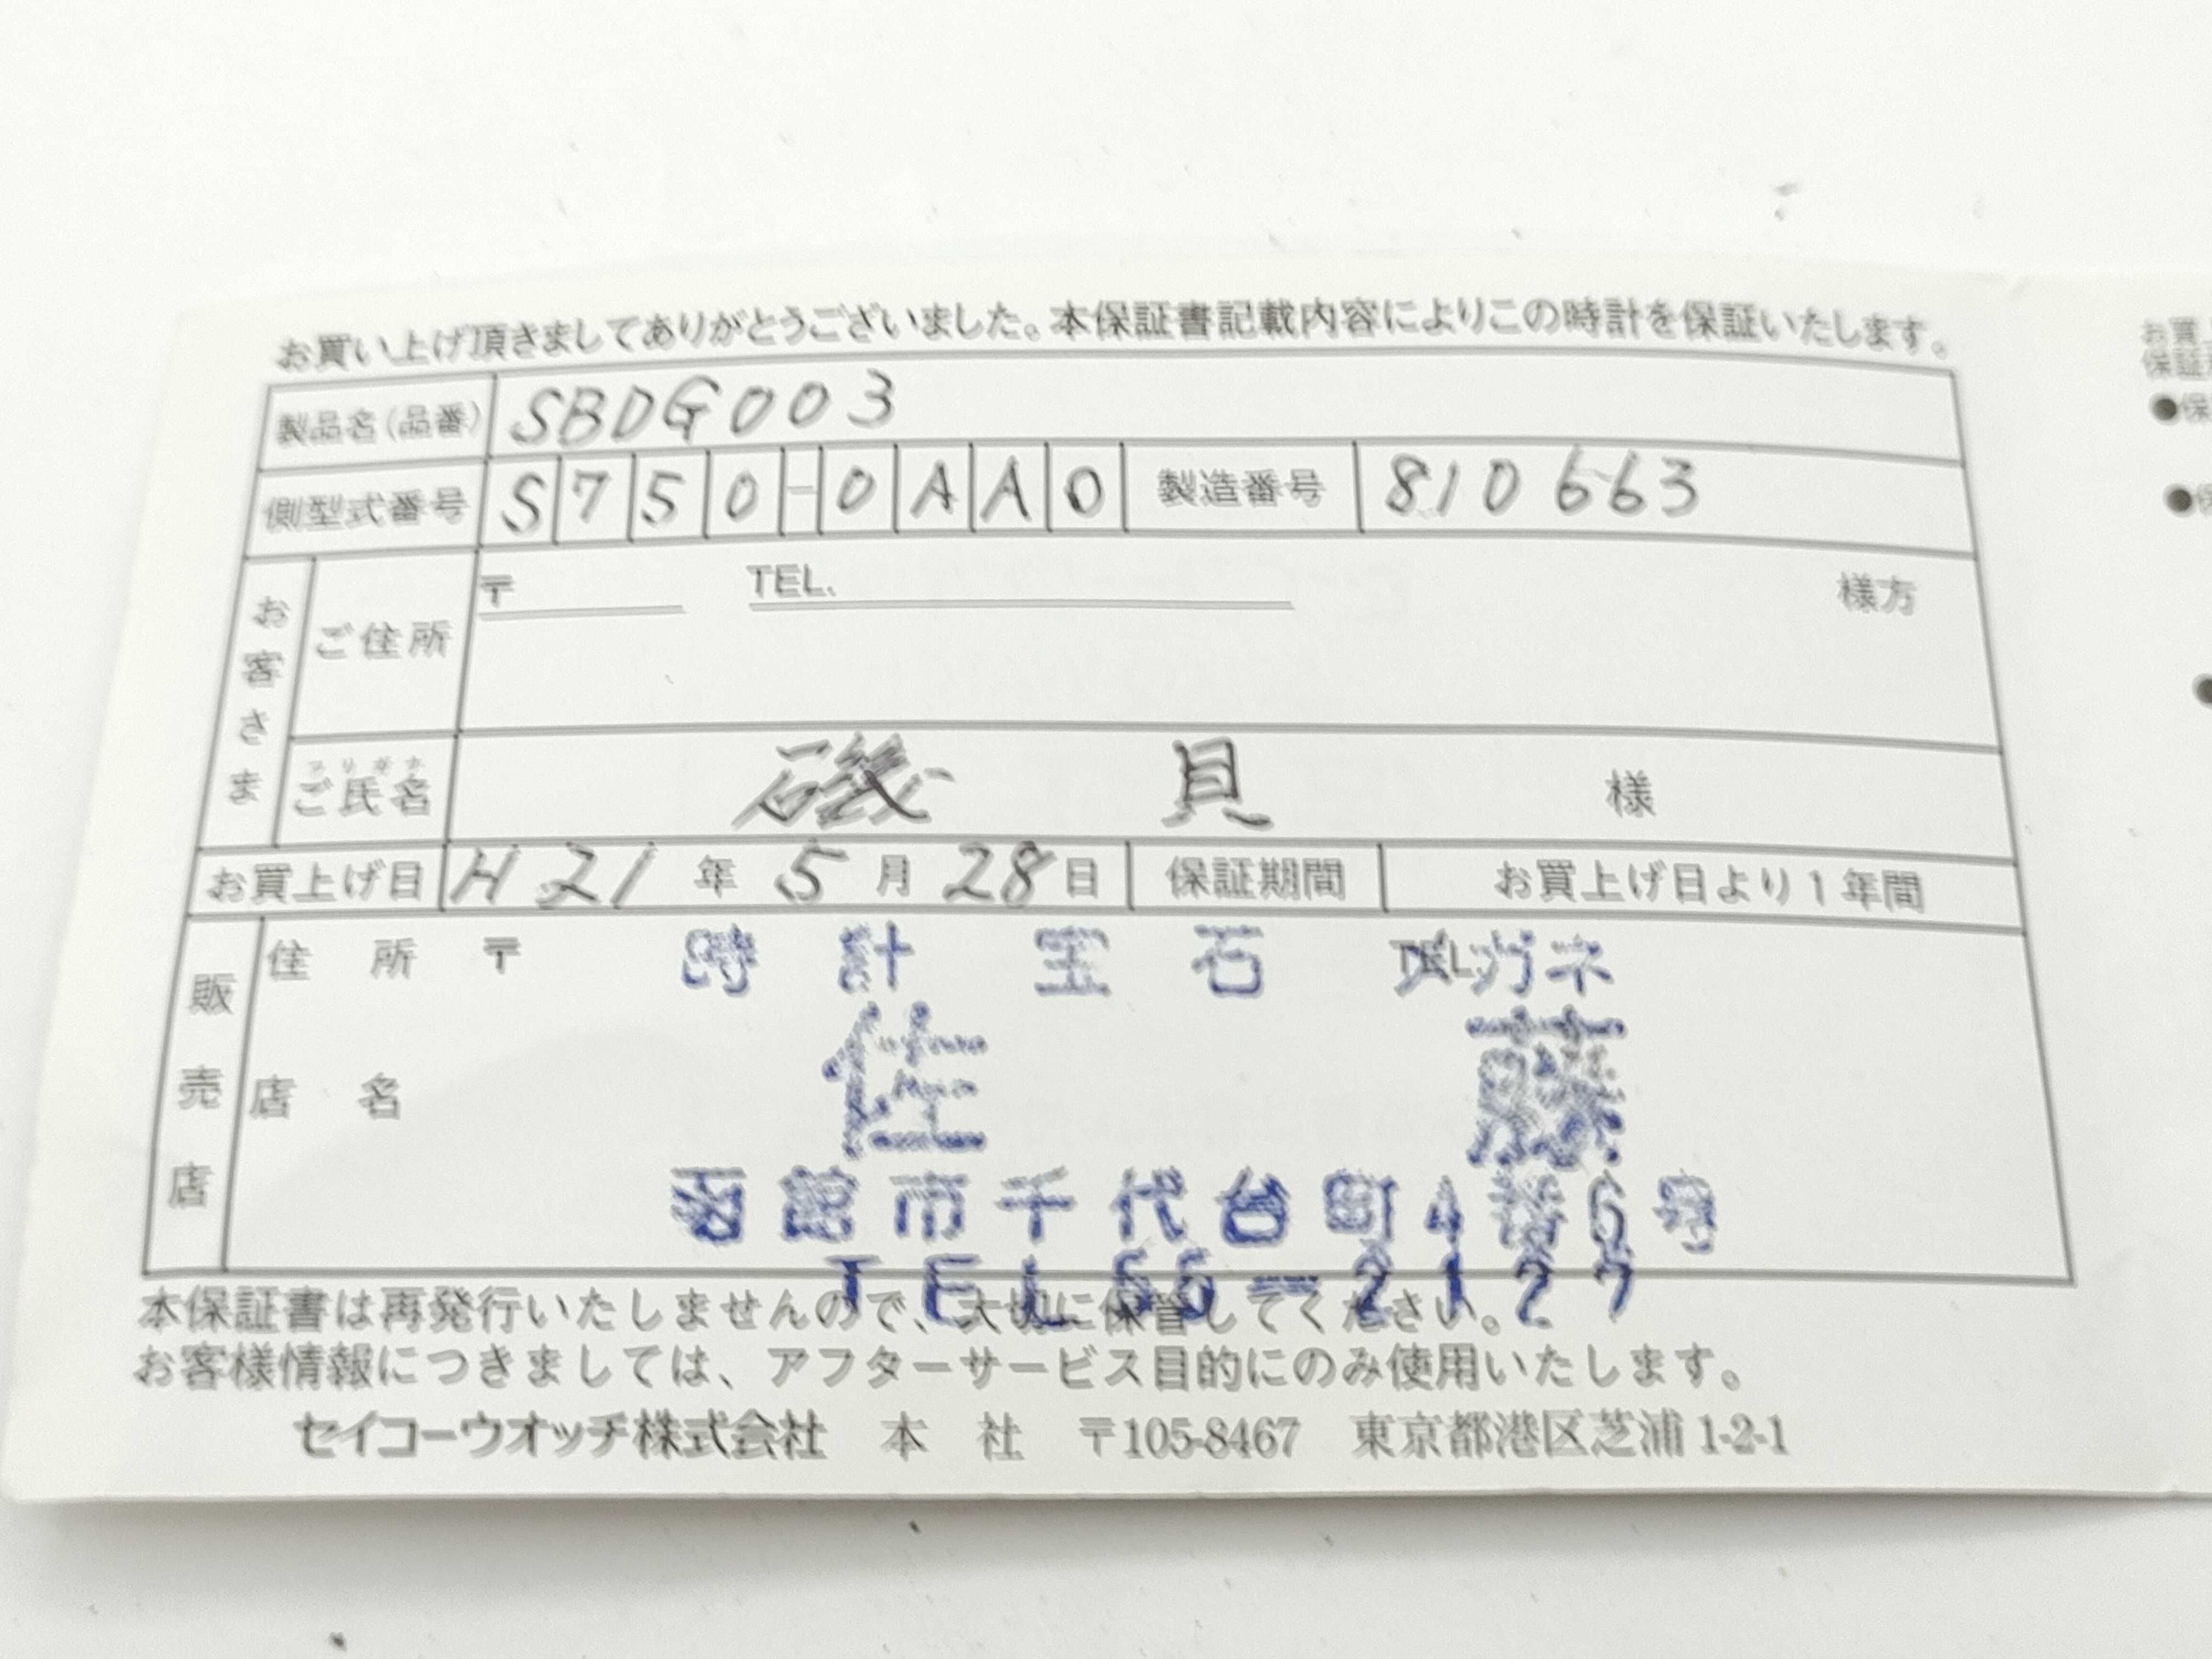 お買い上げ頂きましてありがとうございました。本保証書記載内容によりこの時計を保証いたします。
製品名(品番) SBDG003
側型式番号 S750-0AA0 製造番号 810663
お客さま
ご住所 〒 TEL. 様方
フリガナ
ご氏名 磯貝 様
お買上げ日 H21年5月28日 保証期間 お買上げ日より1年間
販売店
住所 〒 TEL.
時計 宝石 メガネ
店名
佐藤
函館市千代台町4番6号
TEL 55-2127
本保証書は再発行いたしませんので、大切に保管してください。
お客様情報につきましては、アフターサービス目的にのみ使用いたします。
セイコーウオッチ株式会社 本社 〒105-8467 東京都港区芝浦1-2-1
お買
保証
●保